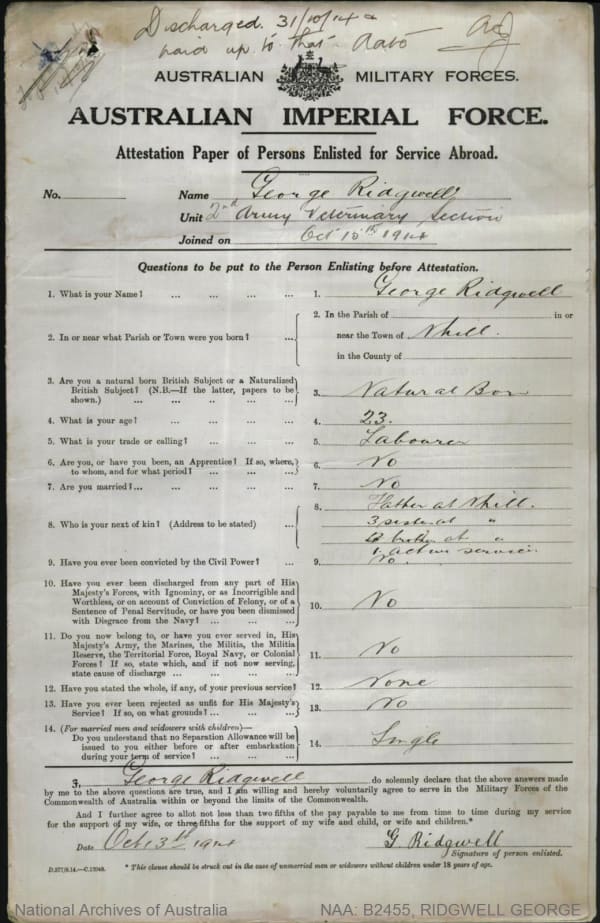 Discharged 31/10/14 &
paid up to that date
AUSTRALIAN MILITARY FORCES.
AUSTRALIAN IMPERIAL FORCE.
Attestation Paper of Persons Enlisted for Service Abroad.
No. Name George Ridgwell
Unit 2nd Army Veterinary Section
Joined on Oct 15th 1914
Questions to be put to the Person Enlisting before Attestation.
1. What is your Name? ... ... ... ... 1. George Ridgwell
2. In or near what Parish or Town were you born? ... 2. In the Parish of in or
near the Town of Nhill.
in the County of
3. Are you a natural born British Subject or a Naturalized
British Subject? (N.B.—If the latter, papers to be
shown.) ... ... ... ... ... 3. Natural Born
4. What is your age? ... ... ... ... 4. 23.
5. What is your trade or calling? ... ... ... 5. Labourer
6. Are you, or have you been, an Apprentice? If so, where,
to whom, and for what period? ... ... ... 6. No
7. Are you married?... ... ... ... ... 7. No
8. Who is your next of kin? (Address to be stated) ... 8. Father at Nhill.
3 sisters at "
brother at "
1. active service.
9. Have you ever been convicted by the Civil Power? ... 9. No.
10. Have you ever been discharged from any part of His
Majesty's Forces, with Ignominy, or as Incorrigible and
Worthless, or on account of Conviction of Felony, or of a
Sentence of Penal Servitude, or have you been dismissed
with Disgrace from the Navy? ... ... ... 10. No
11. Do you now belong to, or have you ever served in, His
Majesty's Army, the Marines, the Militia, the Militia
Reserve, the Territorial Force, Royal Navy, or Colonial
Forces? If so, state which, and if not now serving,
state cause of discharge ... ... ... ... 11. No
12. Have you stated the whole, if any, of your previous service? 12. None
13. Have you ever been rejected as unfit for His Majesty's
Service? If so, on what grounds? ... ... ... 13. No
14. (For married men and widowers with children)—
Do you understand that no Separation Allowance will be
issued to you either before or after embarkation
during your term of service? ... ... ... 14. Single
I, George Ridgwell do solemnly declare that the above answers made
by me to the above questions are true, and I am willing and hereby voluntarily agree to serve in the Military Forces of the
Commonwealth of Australia within or beyond the limits of the Commonwealth.
And I further agree to allot not less than two-fifths of the pay payable to me from time to time during my service
for the support of my wife, or three-fifths for the support of my wife and child, or wife and children.*
Date Oct 13th 1914 G Ridgwell
Signature of person enlisted.
D.577/9.14.—C.12948. * This clause should be struck out in the case of unmarried men or widowers without children under 18 years of age.
National Archives of Australia NAA: B2455, RIDGWELL GEORGE